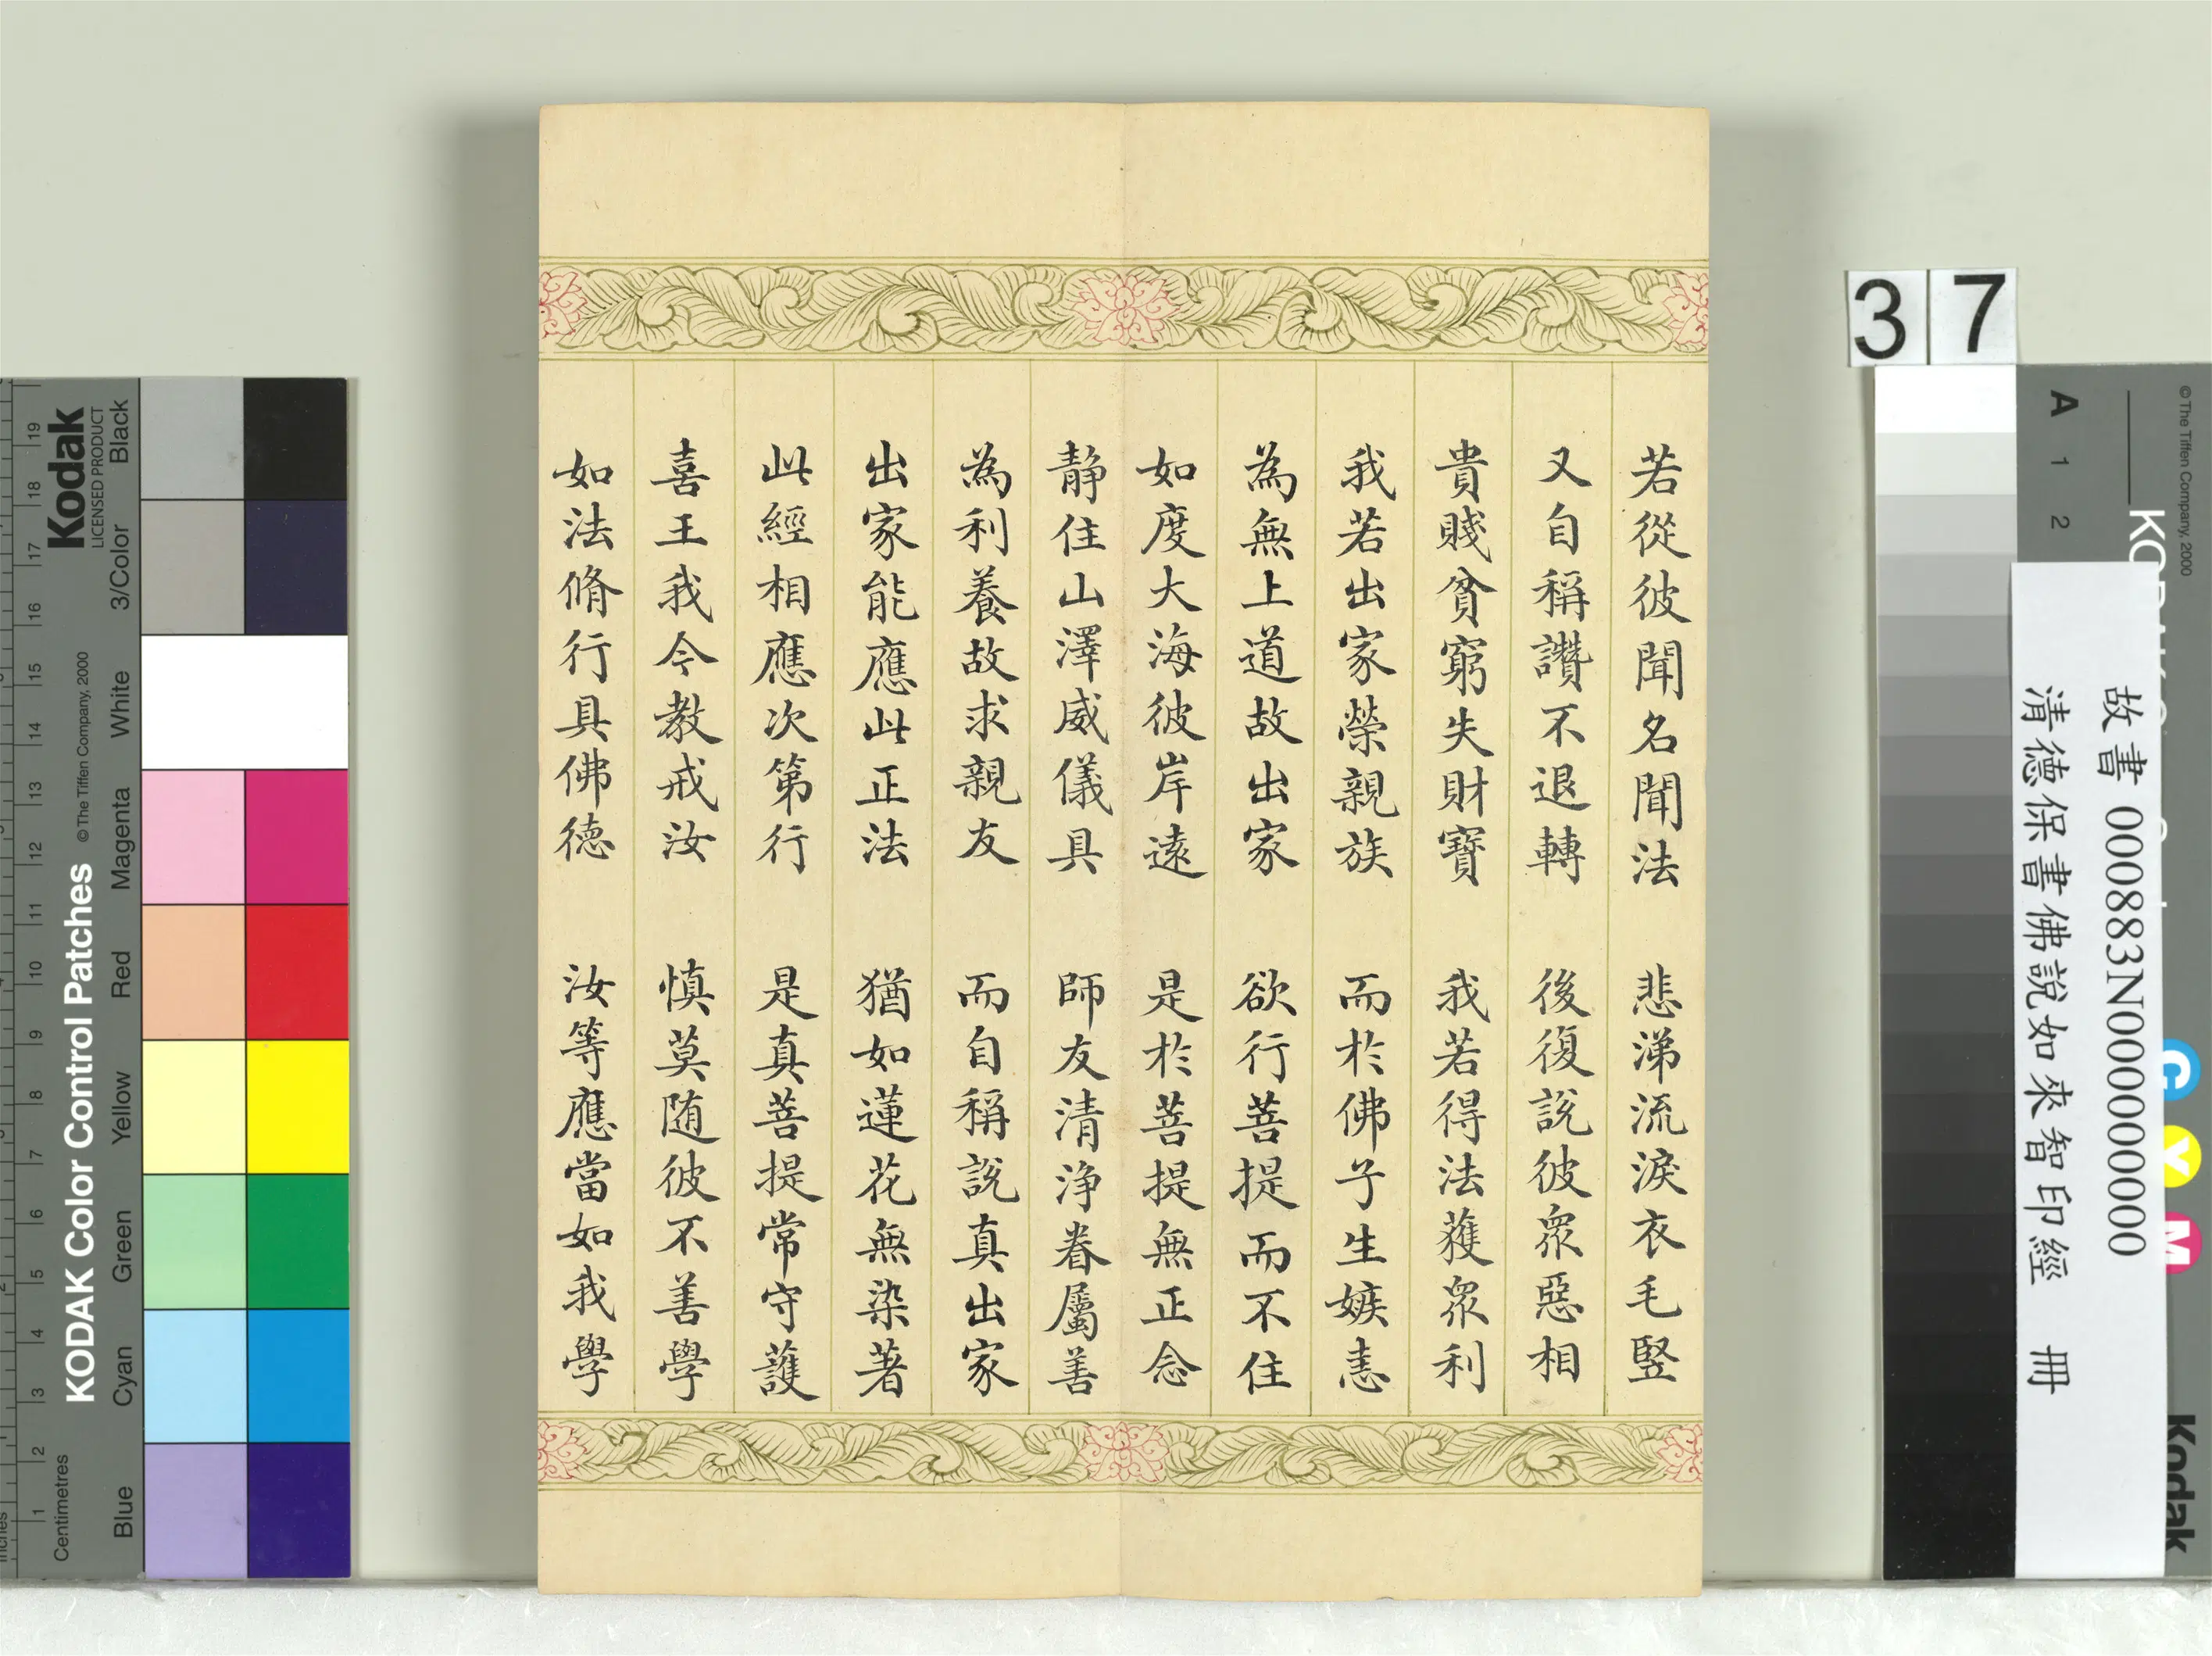 若從彼聞名聞法　悲涕流淚衣毛豎
又自稱讚不退轉　後復説彼眾惡相
貴賤貧窮失財寶　我若得法獲眾利
我若出家榮親族　而於佛子生嫉恚
為無上道故出家　欲行菩提而不住
如度大海彼岸遠　是於菩提無正念
靜住山澤威儀具　師友清淨眷屬善
為利養故求親友　而自稱説真出家
出家能應此正法　猶如蓮花無染著
此經相應次第行　是真菩提常守護
喜王我今教戒汝　慎莫随彼不善學
如法脩行具佛德　汝等應當如我學
37
故書 000883N000000000
清德保書佛說如來智印經　冊
Kodak
LICENSED PRODUCT
KODAK Color Control Patches
© The Tiffen Company, 2000
Black
3/Color
White
Magenta
Red
Yellow
Green
Cyan
Blue
Centimetres
1 2 3 4 5 6 7 8 9 10 11 12 13 14 15 16 17 18 19
A 1 2
© The Tiffen Company, 2000
C Y M
Kodak